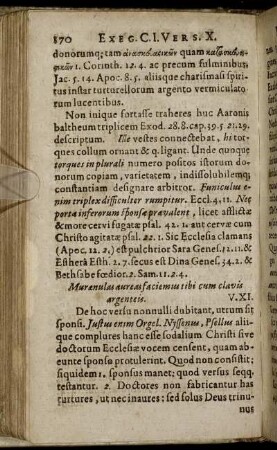 170 EXEG. C. I. VERS. X.
donorumq; tam
1. Corinth. 12. 4. ac precum fulminibus,
Jac. 5. 14. Apoc. 8. 5. aliisque charismasi spiri-
tus instar turturellorum argento vermiculato-
rum lucentibus.
Non inique fortasse traheres huc Aaronis
baltheum triplicem Exod. 28. 8. cap. 39. 5 21. 29.
descriptum. Ille vestes connectebat, hi tor-
ques collum ornant & q. ligant. Unde quoque
torques in plurali numero positos istorum do-
norum copiam, varietatem, indissolubilemq;
constantiam designare arbitror. Funiculus e-
nim triplex difficulter rumpitur. Eccl. 4, 11. Nec
portæ inferorum sponsæ prævalent, licet afflictæ
& more cervi fugatæ psal. 42. 1. aut cervæ cum
Christo agitatæ psal. 22. 1. Sic Ecclesia clamans
(Apoc. 12. 2,) est pulchrior Sara Genes. 12. 11. &
Estherâ Esth. 2. 7. secus est Dina Genes. 34. 2. &
Bethsabe fœdior. 2. Sam. 11. 2. 4.
Murænulas aureas faciemus tibi cum clavis
argenteis. V. XI.
De hoc versu nonnulli dubitant, utrum sit
sponsi. Justus enim Orgel. Nyssenus, Psellus alii-
que complures hanc esse sodalium Christi sive
doctorum Ecclesiæ vocem censent, quam ab-
eunte sponso protulerint. Quod non consistit;
siquidem 1. sponsus manet; quod versus seqq.
testantur. 2. Doctores non fabricantur has
turtures, ut nec inaures: sed solus Deus trinu-
nus